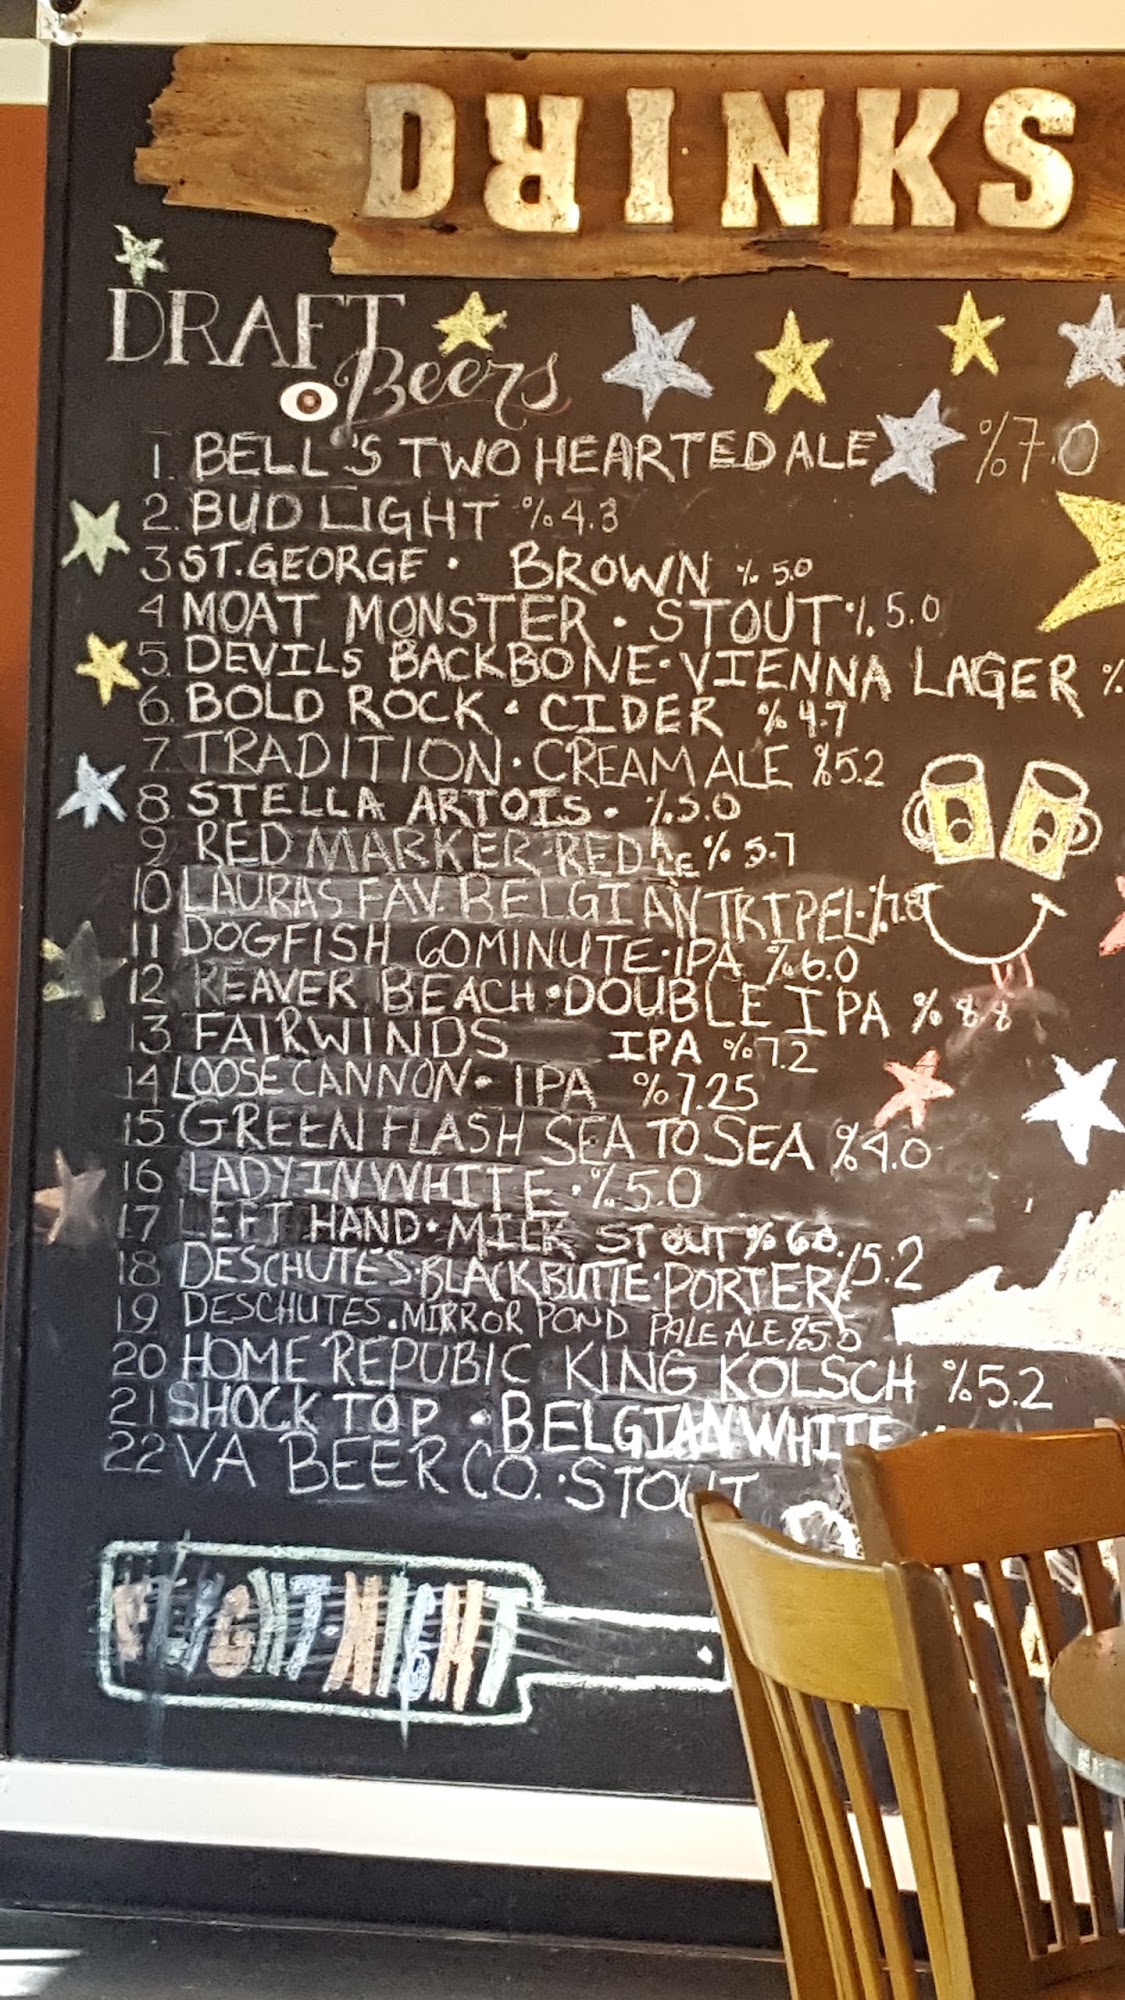 DRINKS
DRAFT
Beers
1. BELL'S TWO HEARTED ALE %7.0
2. BUD LIGHT %4.3
3 ST. GEORGE · BROWN % 5.0
4 MOAT MONSTER · STOUT % 5.0
5. DEVILS BACKBONE · VIENNA LAGER %
6. BOLD ROCK · CIDER % 4.7
7. TRADITION · CREAM ALE %5.2
8. STELLA ARTOIS · %5.0
9 RED MARKER RED ALE % 5.7
10 LAURAS FAV. BELGIAN TRIPEL
11 DOGFISH 60 MINUTE · IPA %6.0
12 REAVER BEACH · DOUBLE IPA % 8.8
13 FAIRWINDS IPA %7.2
14 LOOSE CANNON · IPA %7.25
15 GREEN FLASH SEA TO SEA %4.0
16 LADY IN WHITE · %5.0
17 LEFT HAND · MILK STOUT % 6.0
18 DESCHUTES · BLACK BUTTE · PORTER % 5.2
19 DESCHUTES · MIRROR POND PALE ALE %5.0
20 HOME REPUBIC KING KOLSCH %5.2
21 SHOCK TOP · BELGIAN WHITE
22 VA BEER CO. · STOUT
FLIGHT NIGHT